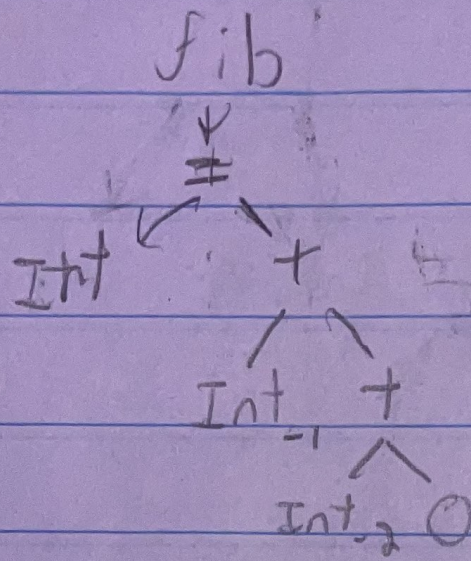 fib
=
Int +
Int-1 +
Int-2 0